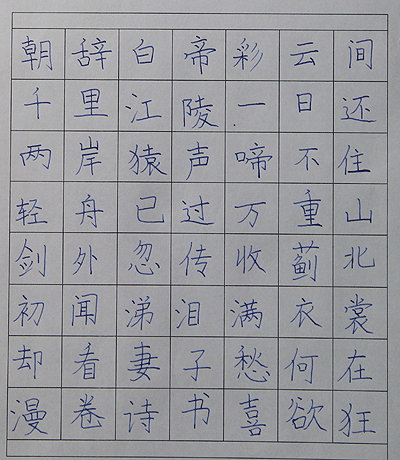 朝辞白帝彩云间
千里江陵一日还
两岸猿声啼不住
轻舟已过万重山
剑外忽传收蓟北
初闻涕泪满衣裳
却看妻子愁何在
漫卷诗书喜欲狂